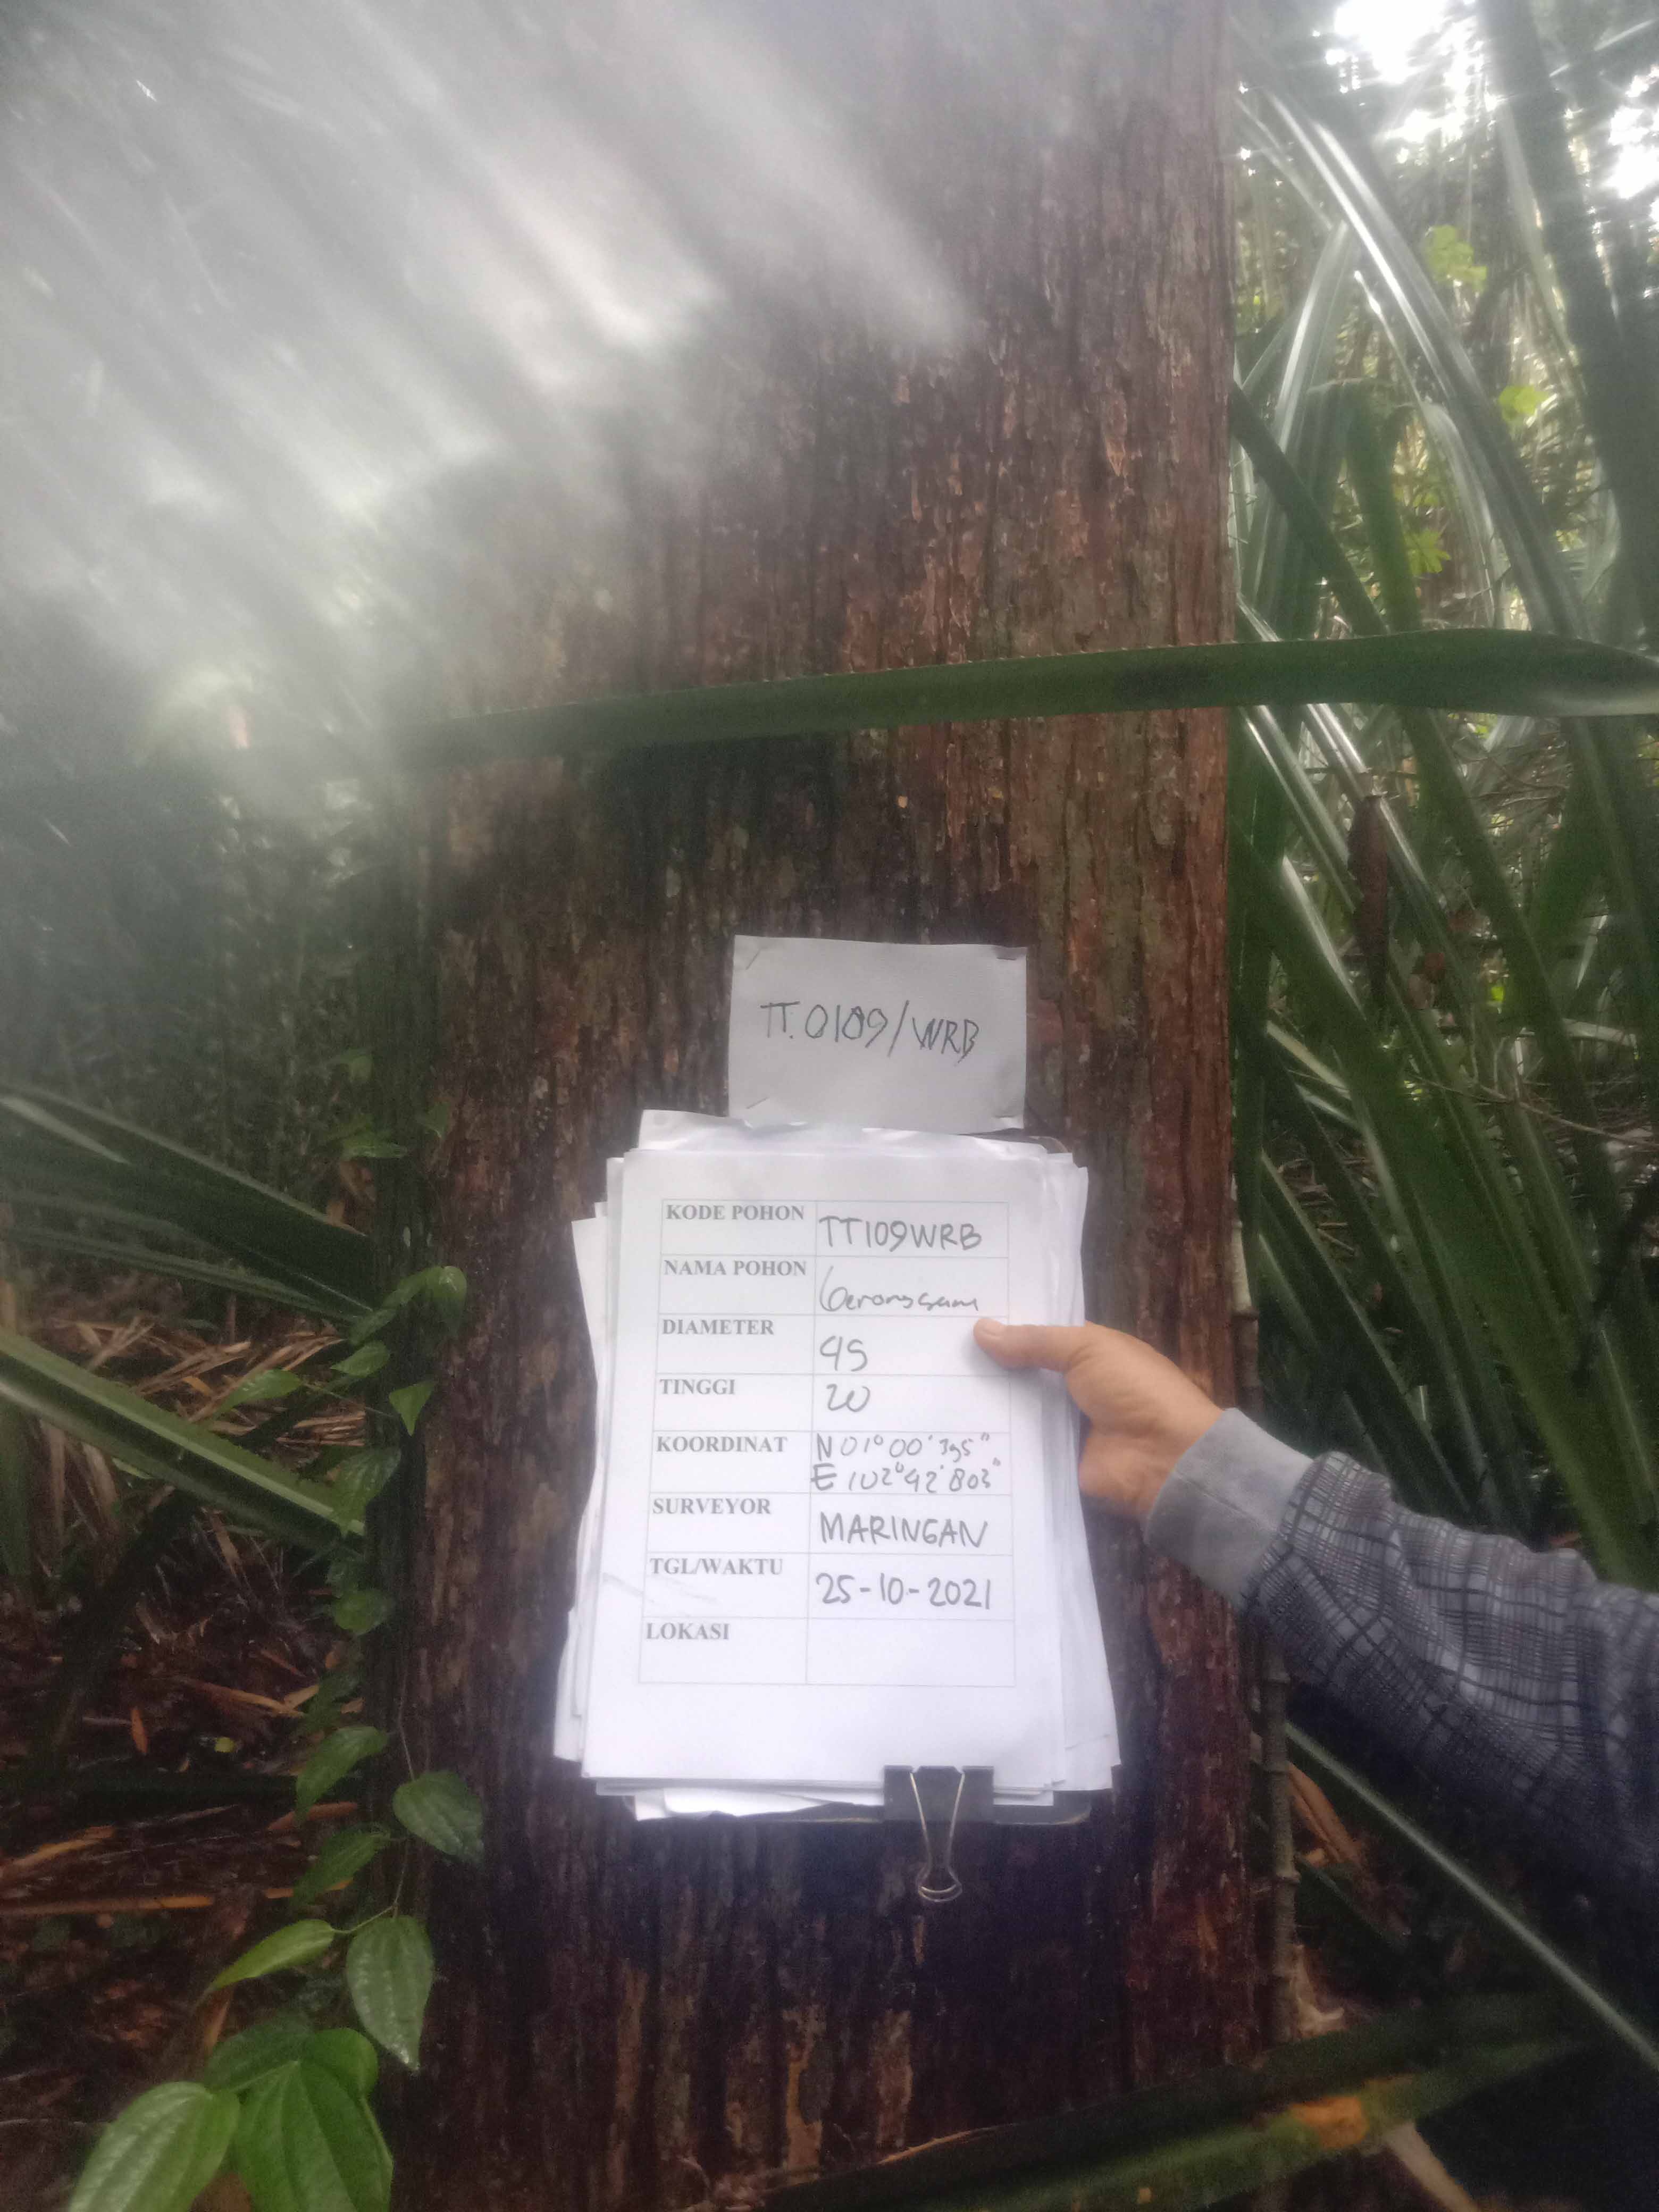 TT.0109/WRB
KODE POHON TT109WRB
NAMA POHON Geronggam
DIAMETER 45
TINGGI 20
KOORDINAT N 01° 00' 395"
E 102° 42' 803"
SURVEYOR MARINGAN
TGL/WAKTU 25-10-2021
LOKASI